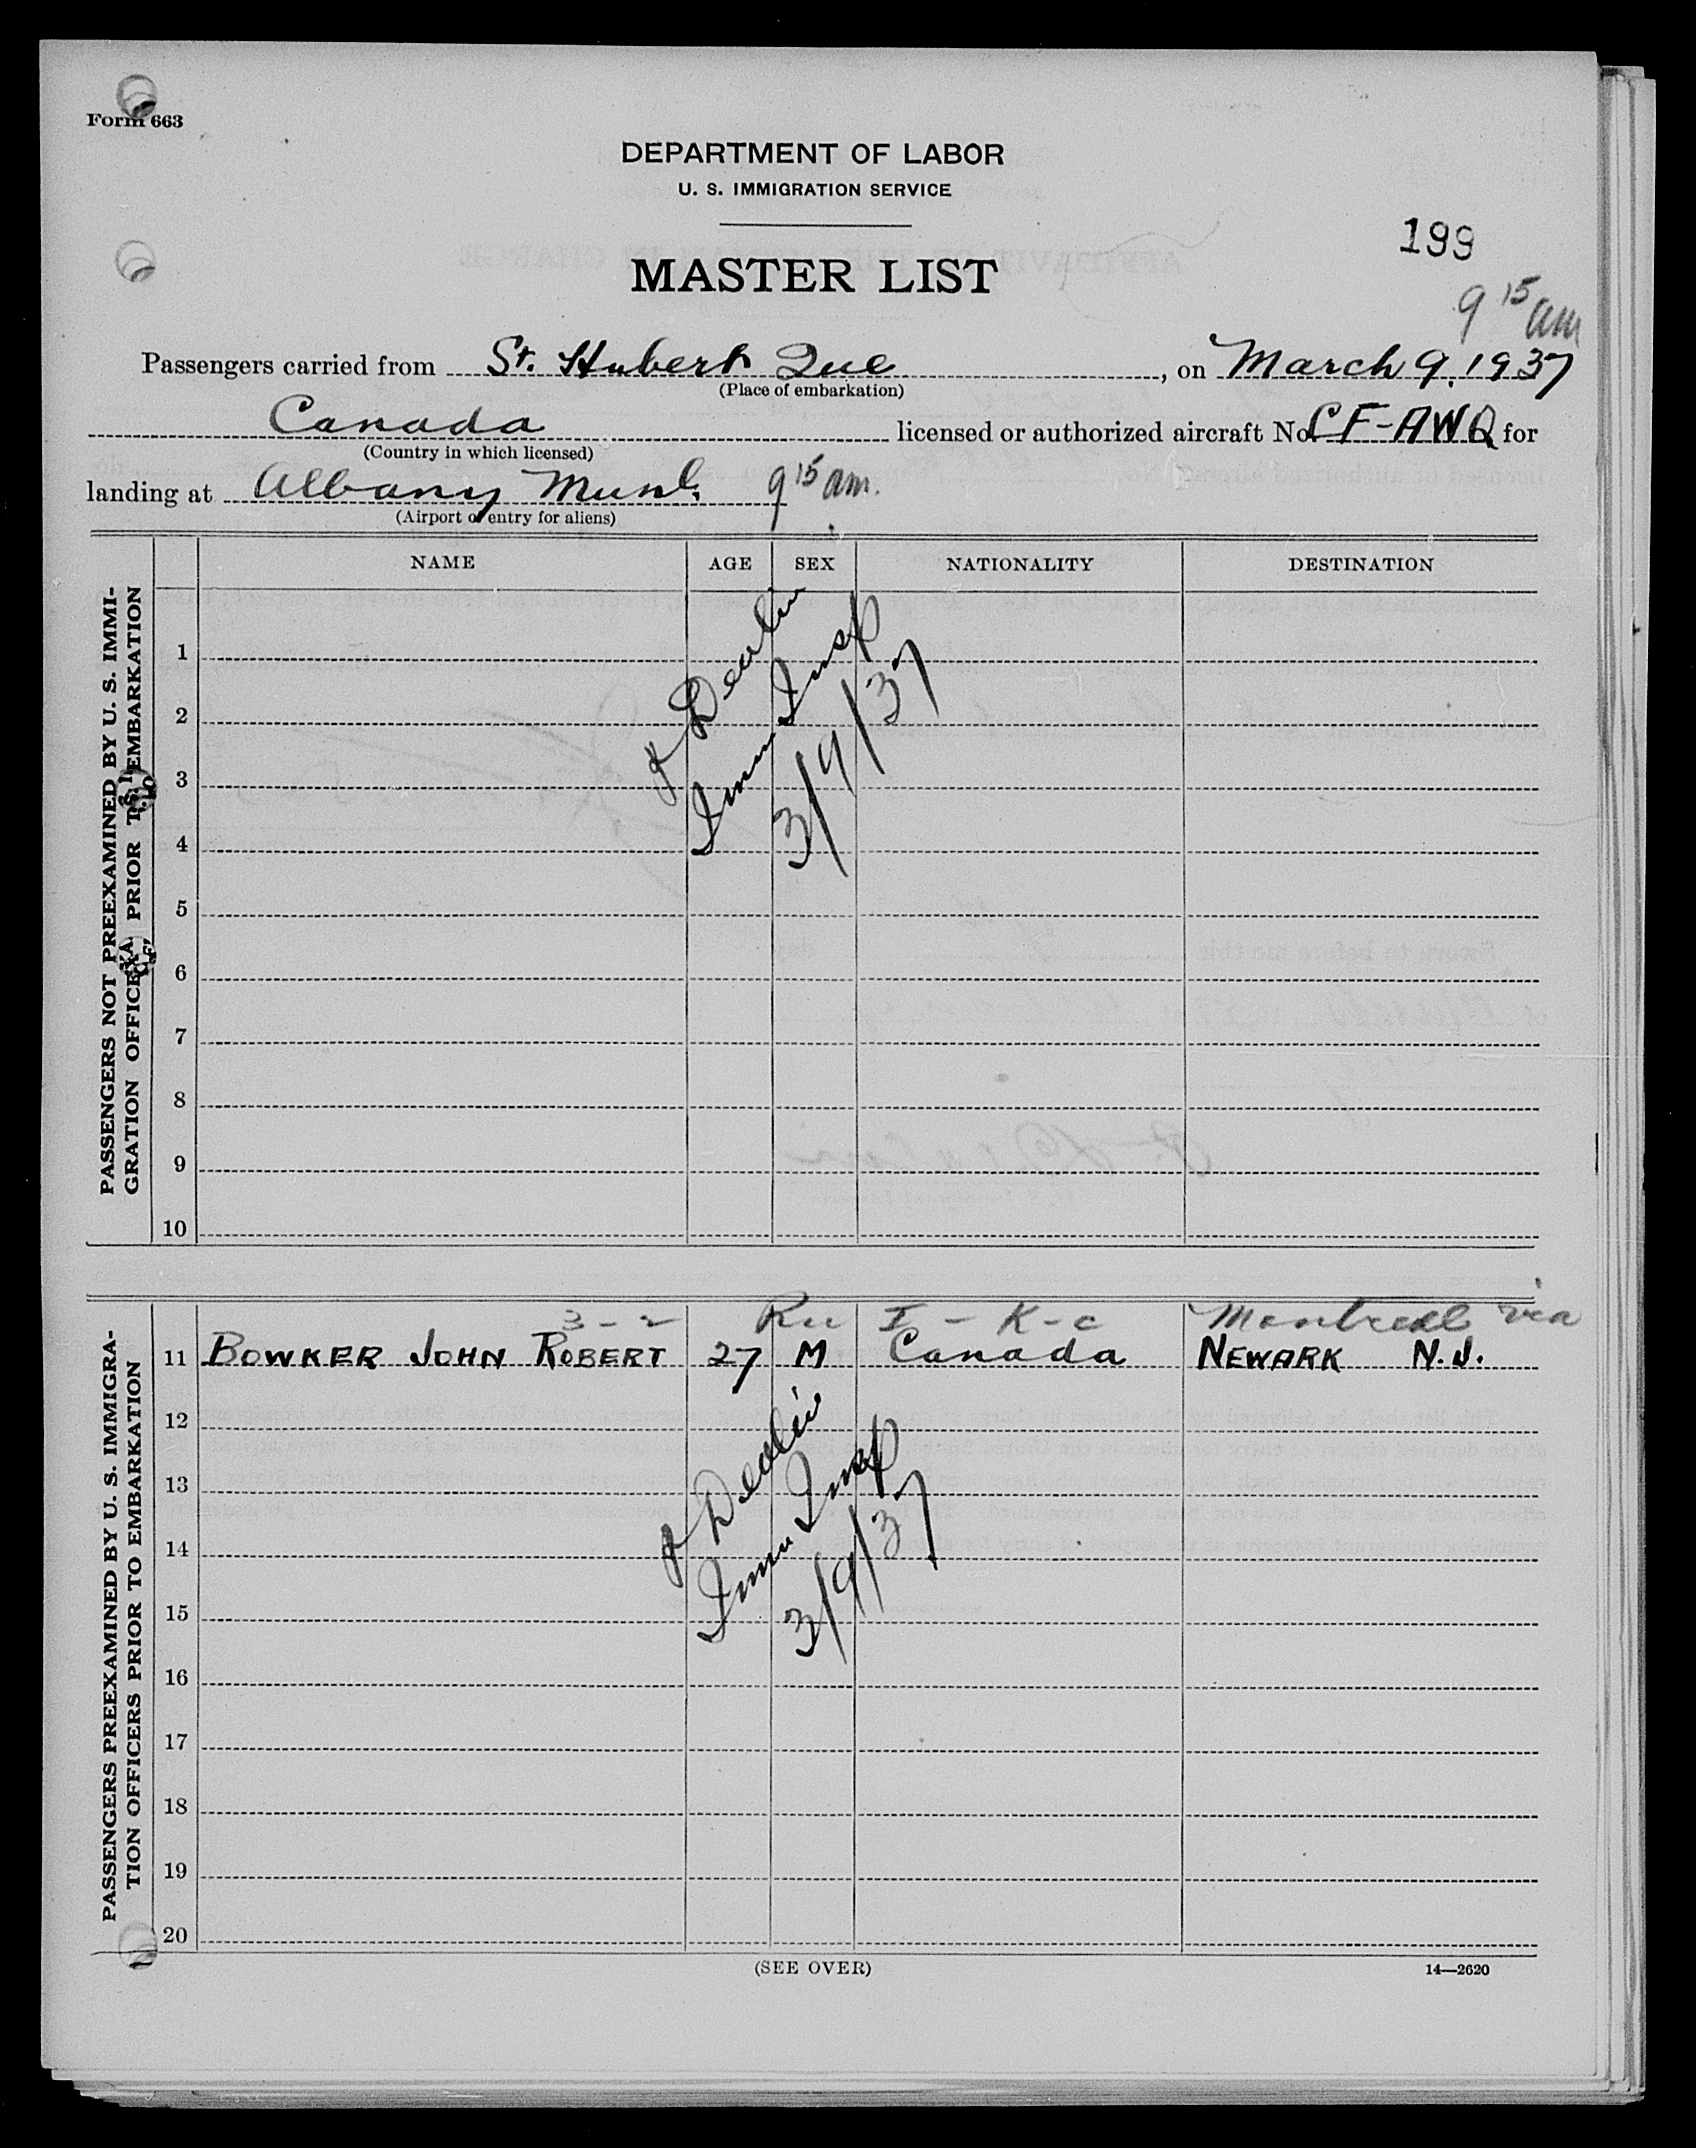 Form 663
DEPARTMENT OF LABOR
U. S. IMMIGRATION SERVICE
199
MASTER LIST
9 15 am
Passengers carried from St. Hubert Que , on March 9, 1937
(Place of embarkation)
Canada licensed or authorized aircraft No. CF-AWQ for
(Country in which licensed)
landing at Albany Munl. 9 15 am.
(Airport of entry for aliens)
NAME AGE SEX NATIONALITY DESTINATION
PASSENGERS NOT PREEXAMINED BY U. S. IMMI-
GRATION OFFICERS PRIOR TO EMBARKATION
1
2
3
4
5
6
7
8
9
10
Imm Insp
3/9/37
PASSENGERS PREEXAMINED BY U. S. IMMIGRA-
TION OFFICERS PRIOR TO EMBARKATION
3-2 I - K-c Montreal via
11 BOWKER JOHN ROBERT 27 M Canada NEWARK N.J.
12
13
14
15
16
17
18
19
20
Imm Insp
3/9/37
(SEE OVER)
14—2620